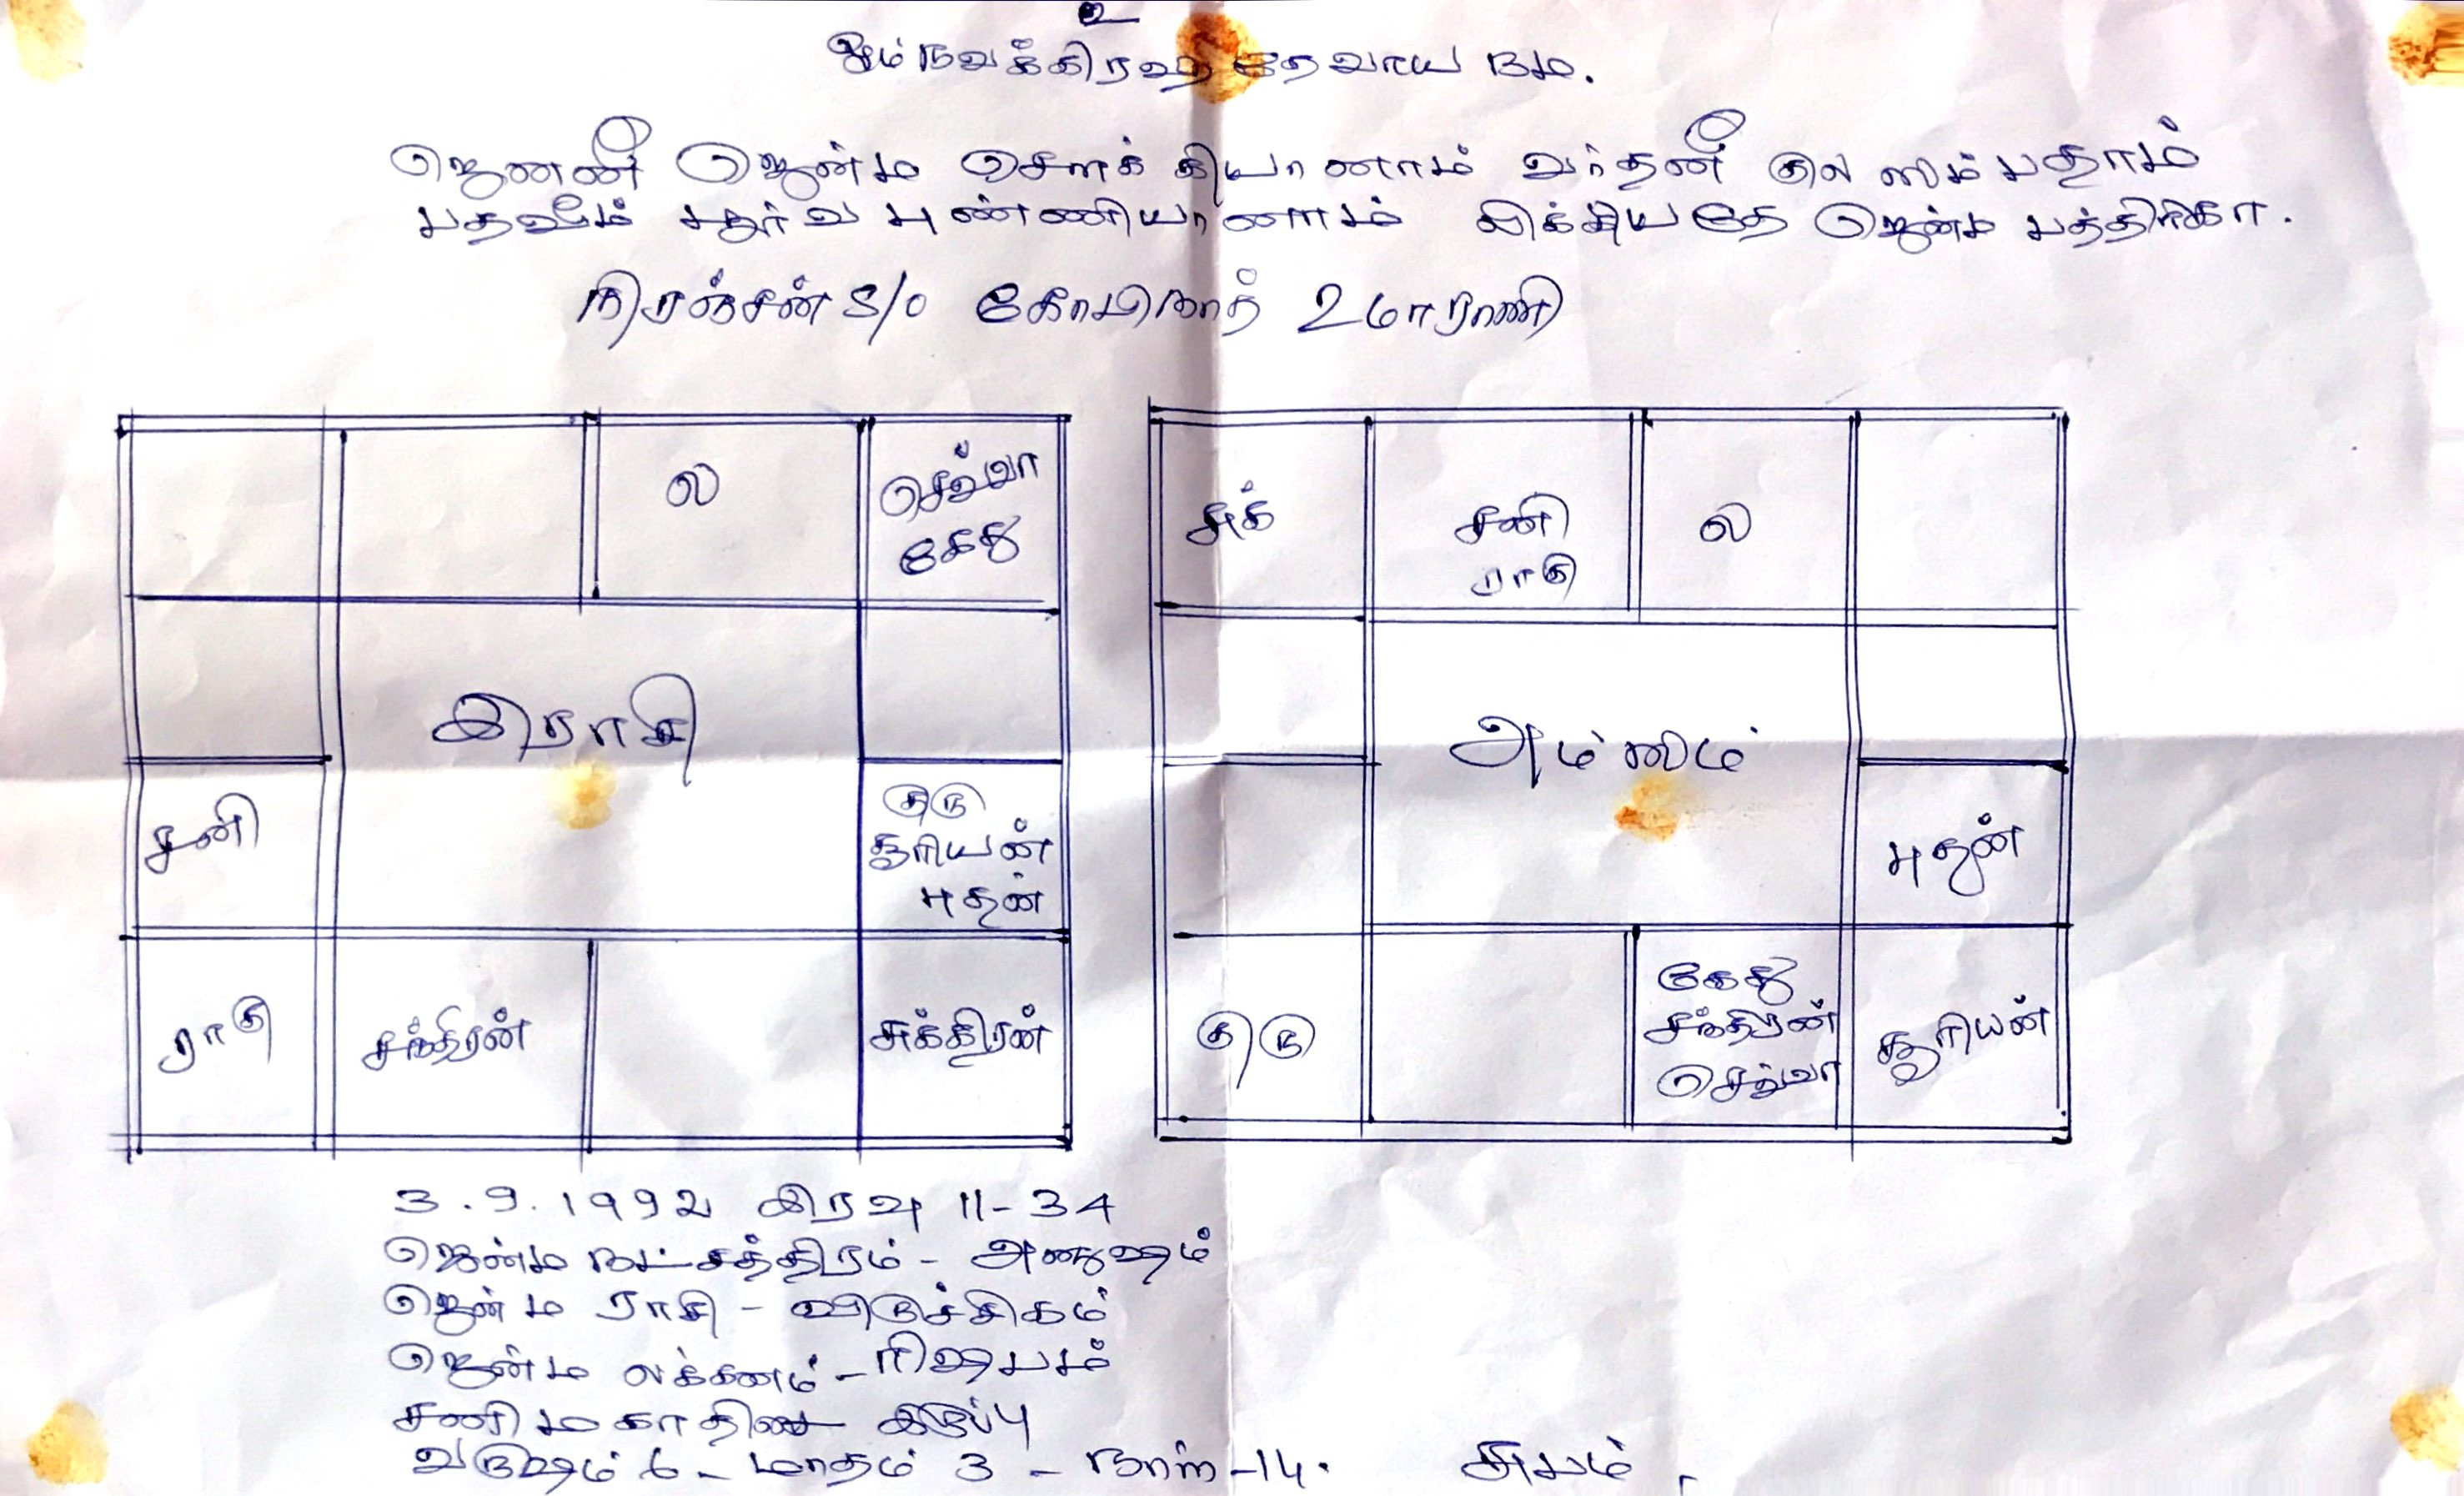 உ
ஓம் நவக்கிரஹ தேவாய நம.
ஜெனனீ ஜென்ம சௌக்கியானாம் வர்தனீ குல ஸம்பதாம்
பதவீம் பூர்வ புண்ணியானாம் லிக்கியதே ஜென்ம பத்திரிகா.
நிரஞ்சன் S/O கோபிநாத் உமாராணி
ல
செவ்வா
கேது
இராசி
சனி
குரு
சூரியன்
புதன்
ராகு
சந்திரன்
சுக்கிரன்
சுக்
சனி
ராகு
ல
அம்ஸம்
புதன்
குரு
கேது
சந்திரன்
செவ்வா
சூரியன்
3.9.1992 இரவு 11-34
ஜென்ம நட்சத்திரம் - அனுஷம்
ஜென்ம ராசி - விருச்சிகம்
ஜென்ம லக்கனம் - ரிஷபம்
சனி மகாதிசை இருப்பு
வருஷம் 6 - மாதம் 3 - நாள் - 14.
சுபம்.